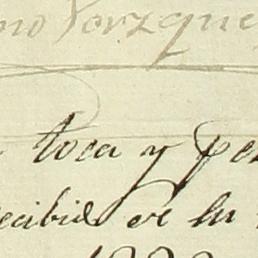 no Vorzque
toca y pe
ecibid de la